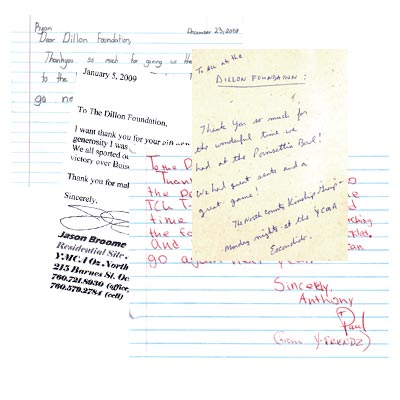 Ryan
December 23, 2008
Dear Dillon Foundation,
Thankyou so much for giving us the
to the
go ne
January 5, 2009
To The Dillon Foundation,
I want thank you for your gift
generosity I was
We all sported ou
victory over Bois
Thank you for mal
Sincerely,
Jason Broome
Residential Site
YMCA Oz North
215 Barnes St. Oc
760.721.8930 (office
760.579.2784 (cell)
To all at the
DILLON FOUNDATION:
Thank You so much for
the wonderful time we
had at the Poinsettia Bowl!
We had great seats and a
great game!
The North County Kinship Group -
Monday nights at the YMCA
Escondido
To the D
Thank
the Po
TCU T-
time
the fo
And
go again next y can
Sincerly,
Anthony
+
Paul
Y-FRIENDZ)